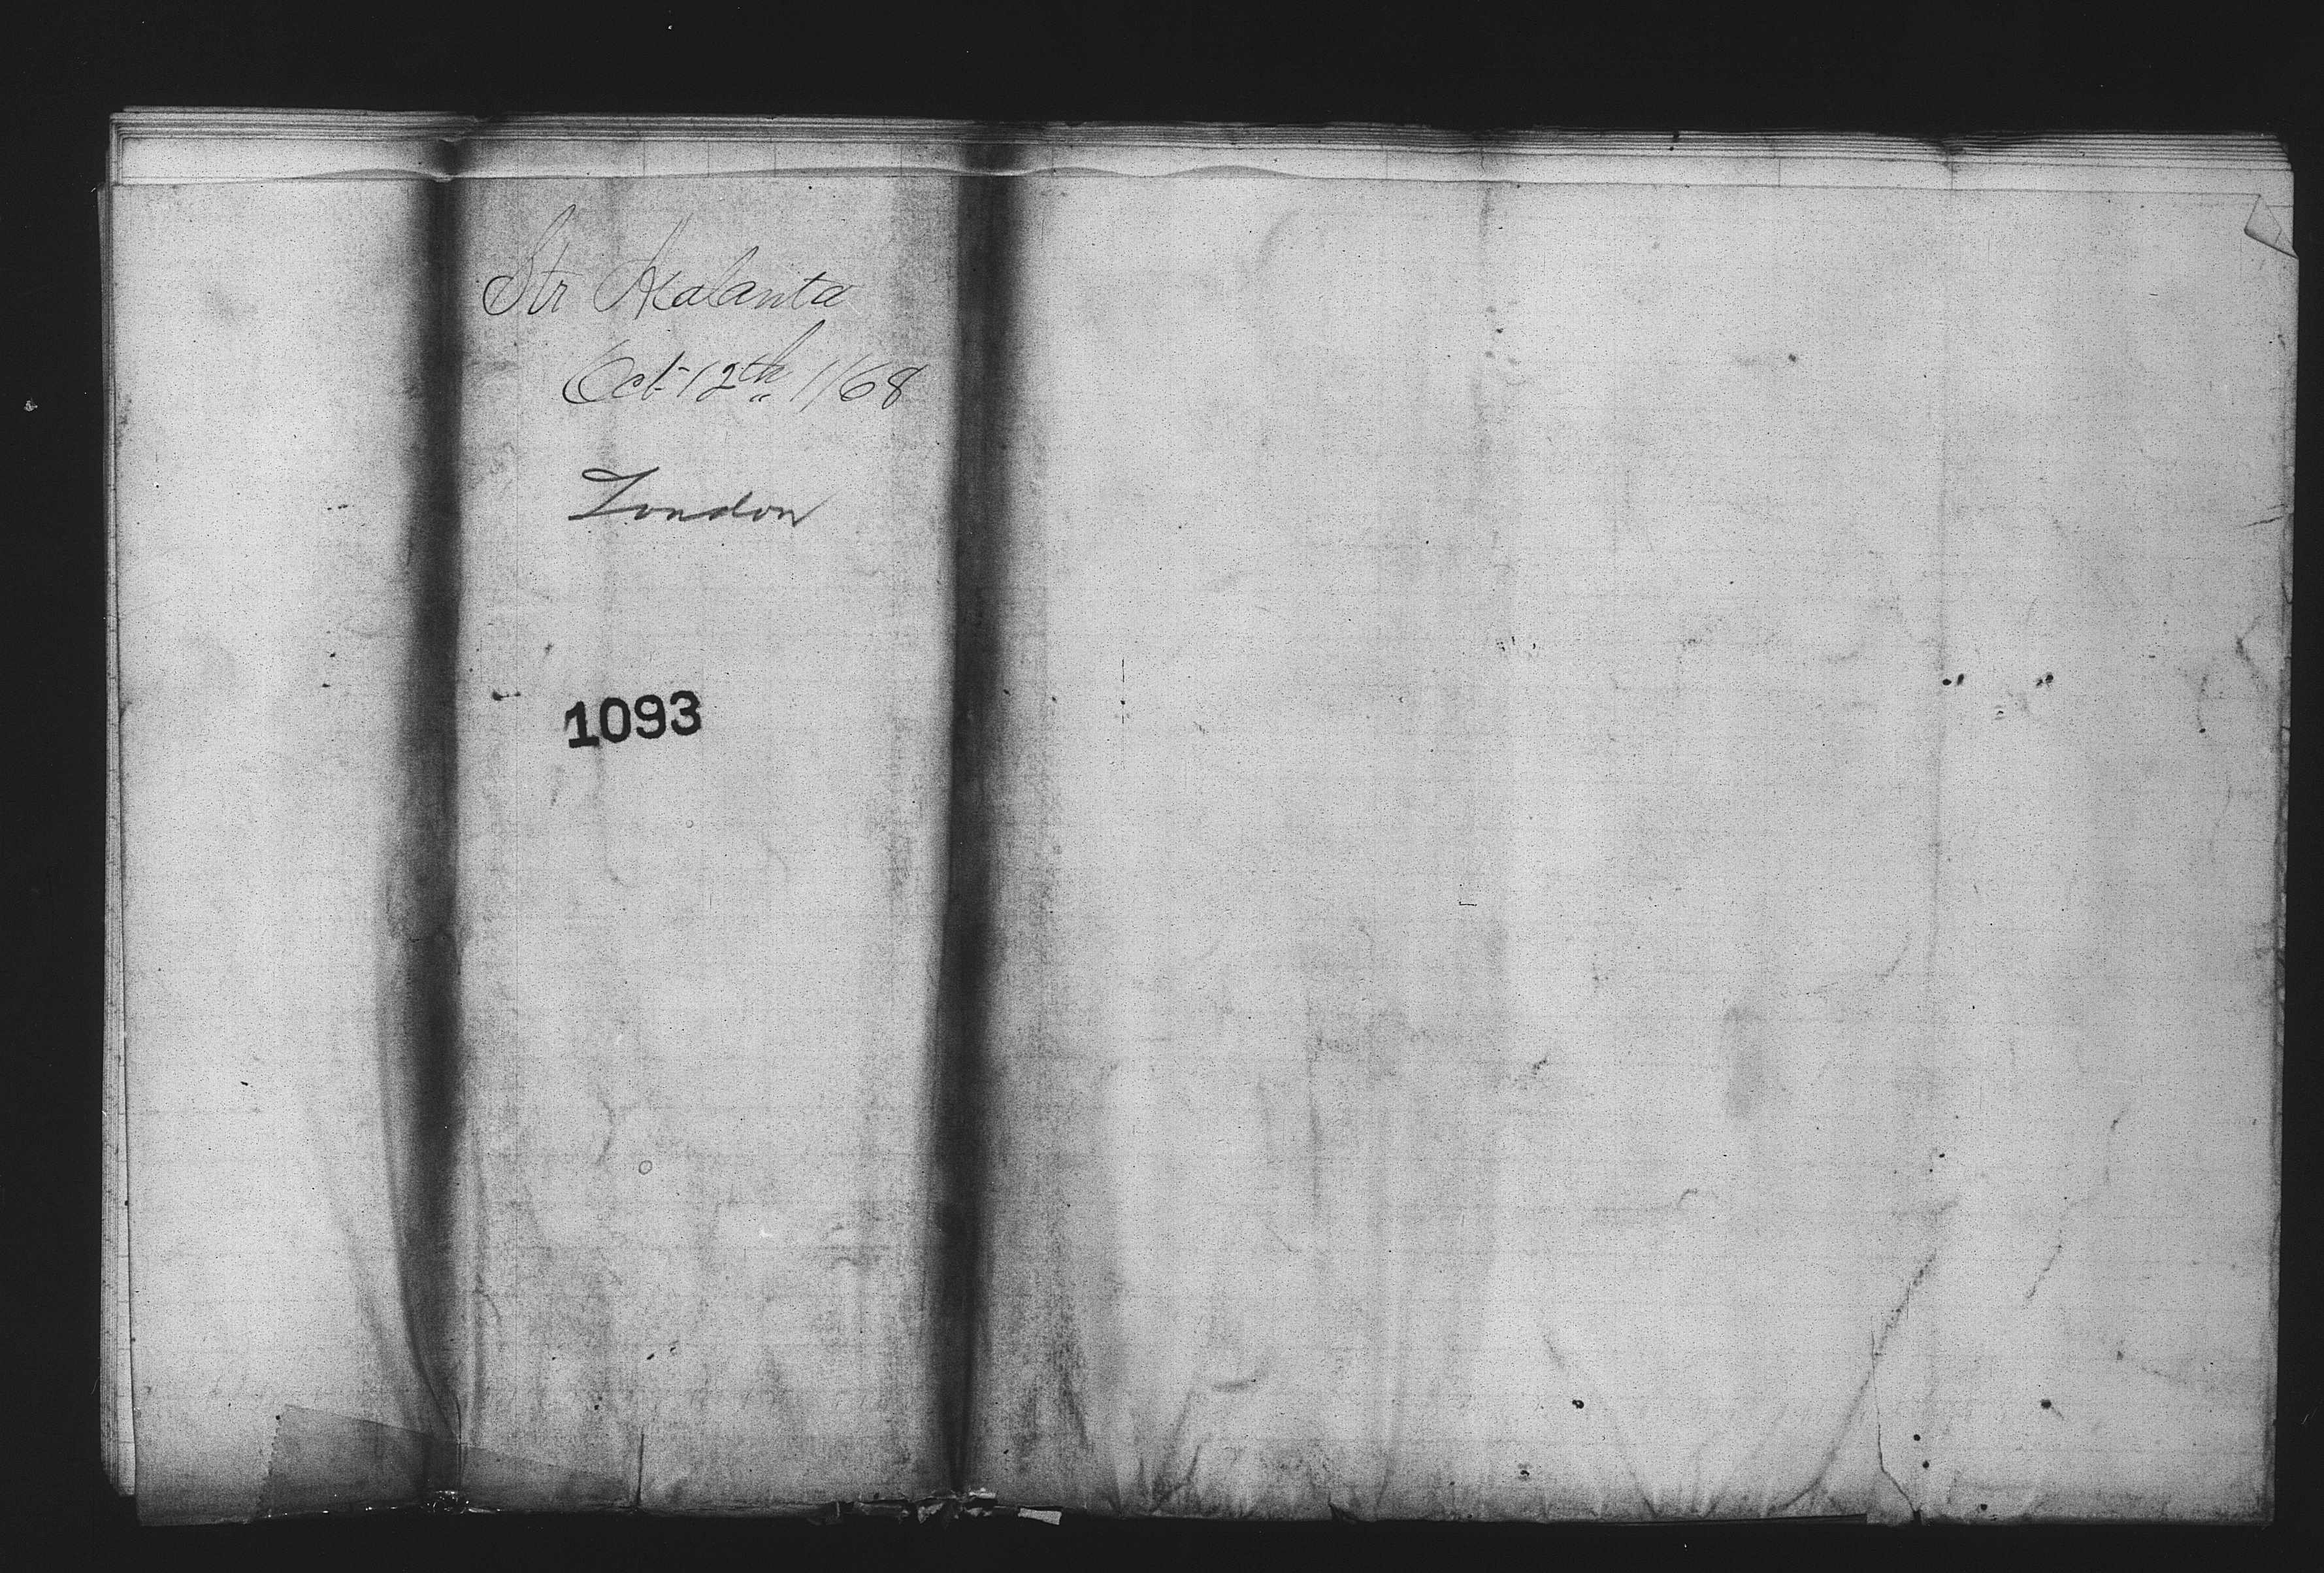 Str Atalanta
Oct 12th 1/68
London
1093